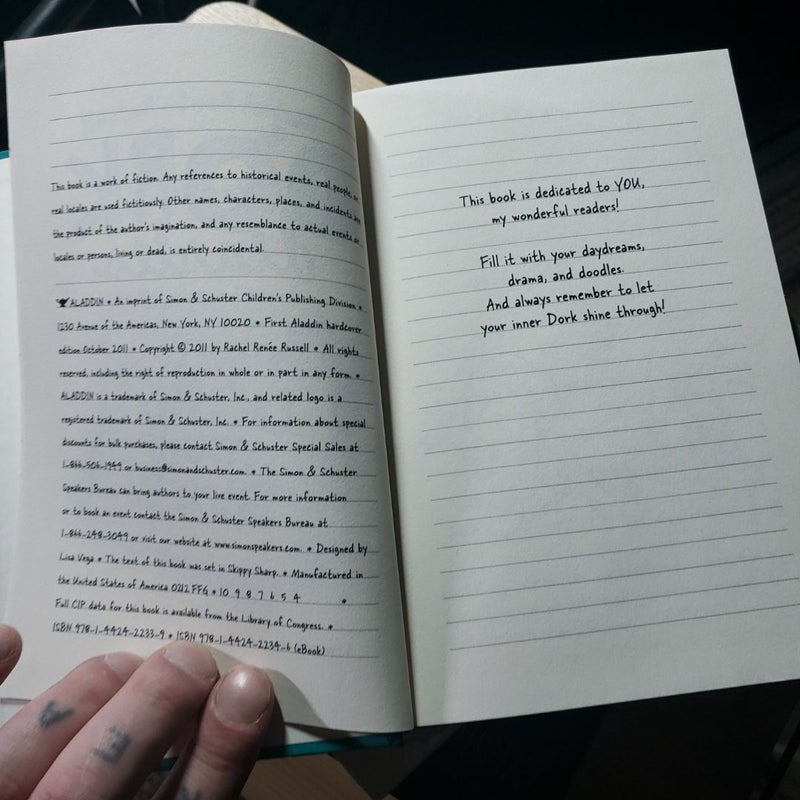 This book is a work of fiction. Any references to historical events, real people, or
real locales are used fictitiously. Other names, characters, places, and incidents are
the product of the author's imagination, and any resemblance to actual events or
locales or persons, living or dead, is entirely coincidental.
ALADDIN * An imprint of Simon & Schuster Children's Publishing Division *
1230 Avenue of the Americas, New York, NY 10020 * First Aladdin hardcover
edition October 2011 * Copyright © 2011 by Rachel Renée Russell * All rights
reserved, including the right of reproduction in whole or in part in any form. *
ALADDIN is a trademark of Simon & Schuster, Inc., and related logo is a
registered trademark of Simon & Schuster, Inc. * For information about special
discounts for bulk purchases, please contact Simon & Schuster Special Sales at
1-866-506-1949 or business@simonandschuster.com. * The Simon & Schuster
Speakers Bureau can bring authors to your live event. For more information
or to book an event contact the Simon & Schuster Speakers Bureau at
1-866-248-3049 or visit our website at www.simonspeakers.com. * Designed by
Lisa Vega * The text of this book was set in Skippy Sharp. * Manufactured in
the United States of America 0212 FFG * 10 9 8 7 6 5 4 *
Full CIP data for this book is available from the Library of Congress. *
ISBN 978-1-4424-2233-9 * ISBN 978-1-4424-2234-6 (eBook)
This book is dedicated to YOU,
my wonderful readers!
Fill it with your daydreams,
drama, and doodles.
And always remember to let
your inner Dork shine through!